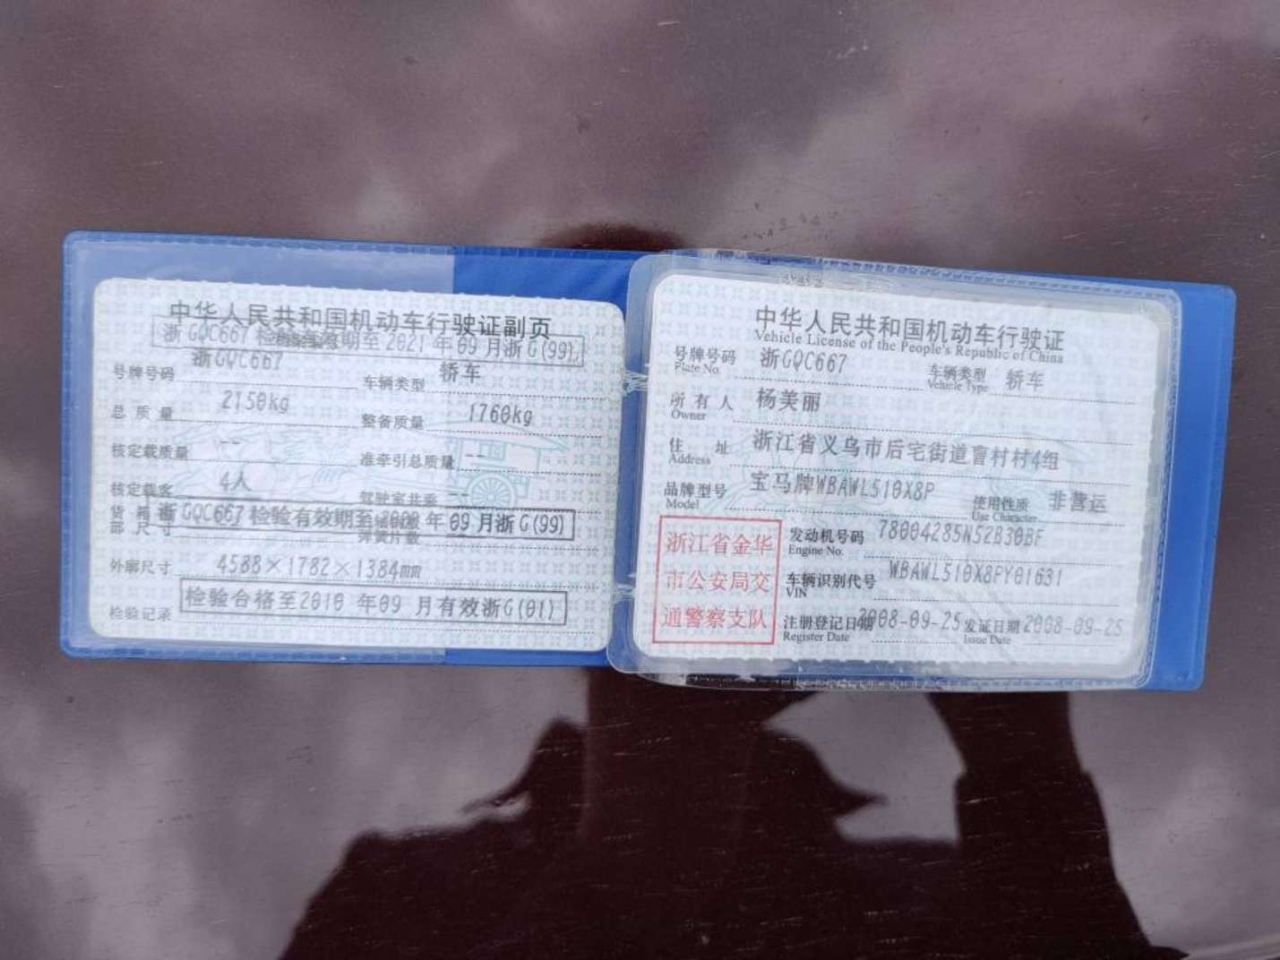 中华人民共和国机动车行驶证副页
浙GQC667 检验有效期至2021年09月浙G(99)
浙GQC667
号牌号码 车辆类型 轿车
总质量 2150kg 整备质量 1760kg
核定载质量 -- 准牵引总质量 --
核定载客 4人 驾驶室共乘 --
浙GQC667 检验有效期至 年09月浙G(99)
部尺寸 弹簧片数
外廓尺寸 4588×1782×1384mm
检验记录 检验合格至2010年09月有效浙G(01)
中华人民共和国机动车行驶证
Vehicle License of the People's Republic of China
号牌号码 浙GQC667 车辆类型 轿车
Plate No. Vehicle Type
所有人 杨美丽
Owner
住址 浙江省义乌市后宅街道曹村村4组
Address
品牌型号 宝马牌WBAWL510X8P 使用性质 非营运
Model Use Character
浙江省金华
市公安局交
通警察支队
发动机号码 78004285N52B30BF
Engine No.
车辆识别代号 WBAWL510X8PY01631
VIN
注册登记日期 2008-09-25 发证日期 2008-09-25
Register Date Issue Date